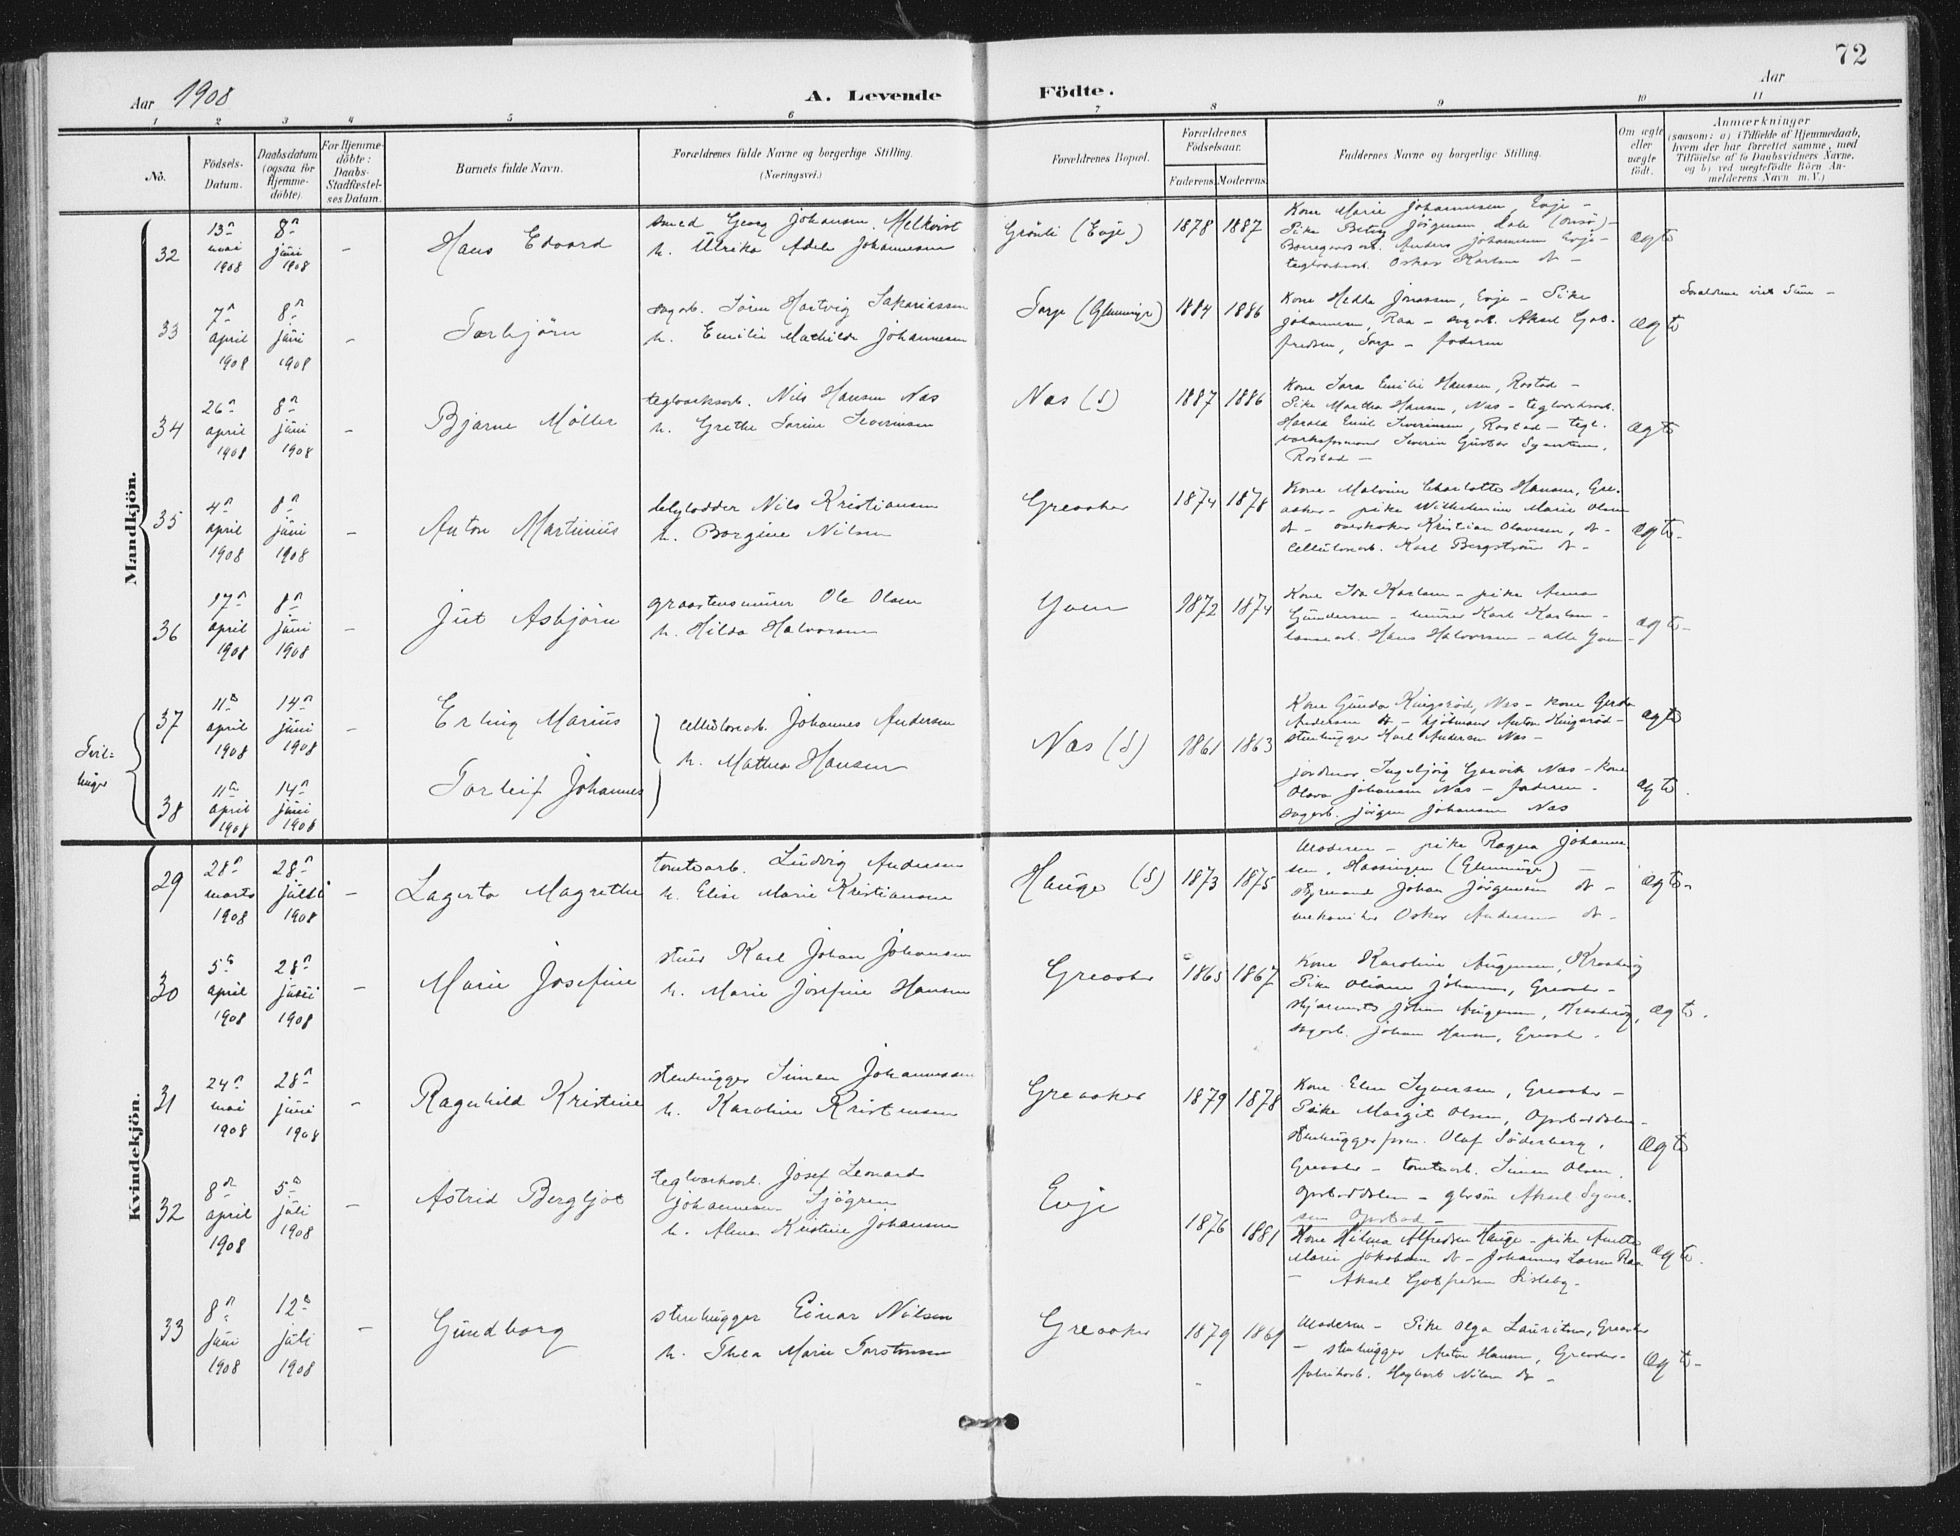 72
Aar 1908
A. Levende Födte.
Aar
1 2 3 4 5 6 7 8 9 10 11
No.
Födsels-
Datum.
Daabsdatum
(ogsaa for
Hjemme-
döbte).
For Hjemme-
döbte:
Daabs-
Stadfæstel-
ses Datum.
Barnets fulde Navn.
Forældrenes fulde Navne og borgerlige Stilling.
(Næringsvei.)
Forældrenes Bopæl.
Forældrenes
Födselsaar.
Faderens. Moderens.
Faddernes Navne og borgerlige Stilling.
Om ægte
eller
uægte
født.
Anmærkninger
(saasom: a) i Tilfælde af Hjemmedaab,
hvem der har forrettet samme, med
Tilföielse af to Daabsvidners Navne,
og b) ved uægtefödte Börn An-
melderens Navn m. V.)
Mandkjön.
32
13n
mai
1908
8n
juni
1908
–
Hans Edvard
smed Georg Johansen Melkvist
h. Ulrika Adele Johannesen
Grönli (Evje)
1878 1887
Kone Marie Johannesen, Evje –
Pike Betsy Jörgensen,
Anders Johannesen Evje –
teglverksarb. Oskar Karlsen
ægte
33
7n
april
1908
8n
juni
1908
–
Torbjörn
sagarb. Sören Hartvig Sakariassen
h. Emilie Mathilde Johannesen
Torp (Glemminge)
1884 1886
Kone Hedda Jonassen, Evje – Pike
Johannesen, Raa – sagarb. Aksel Got-
fredsen, Torp – faderen
ægte
34
26n
april
1908
8n
juni
1908
–
Bjarne Möller
teglverksarb. Nils Hansen Næs
h. Grethe Sorine Severinsen
Næs (S)
1887 1886
Kone Sara Emilie Hansen, Rostad –
Pike Martha Hansen, Næs – teglverksarb.
Harald Emil Severinsen, Rostad – tegl-
verksformand Severin Gustav Syvertsen,
Rostad –
ægte
35
4n
april
1908
8n
juni
1908
–
Anton Martinius
Nils Kristiansen
h. Borgine Nilsen
Greaaker
1874 1878
Kone Malvine Charlotte Hansen, Gre-
aaker – pike Wilhelmine Marie Olsen
– overkoker Kristian Olavesen,
cellulosearb. Karl Bergström
ægte –
36
17n
april
1908
8n
juni
1908
–
Jut Asbjörn
graastensmurer Ole Olsen
h. Hilda Halvorsen
Yven
1872 1874
Kone Ida Karlsen – pike Anna
Gundersen – murer Karl Karlsen –
Hans Halvorsen – alle Yven –
ægte –
Tvil-
linger
37
11te
april
1908
14n
juni
1908
–
Erling Marius
cellulosearb. Johannes Andersen
h. Mathea Hansen
Næs (S)
1861 1863
Kone Gunda Kingsrød, Næs – kone Gerda
Andersen – Anton Kingsrød –
stenhugger Karl Andersen Næs –
ægte
38
11te
april
1908
14n
juni
1908
Torleif Johannes
jordmor Ingebjörg Næs – kone
Olava Johansen Næs – faderen –
sagarb. Jörgen Johansen Næs
ægte.
Kvindekjön.
29
28n
marts
1908
28n
1908
–
Lagerta Magrethe
tomtearb. Ludvig Andersen
h. Elise Marie Kristiansen
Hauge (S)
1873 1875
Moderen – pike Ragna Johanne-
sen, (Glemminge) –
Johan Jörgensen –
mekaniker Oskar Andersen –
ægte –
30
5te
april
1908
28n
juni
1908
–
Marie Josefine
Karl Johan Johansen
h. Marie Josefine Hansen
Greaaker
1865 1867
Kone Karoline Augensen,
Pike Johansen, Greaaker –
Johan Augensen,
sagarb. Johan Hansen, Greaaker.
ægte.
31
24n
mai
1908
28n
juni
1908
–
Ragnhild Kristine
stenhugger Simen Johannessen
h. Karoline Kristensen
Greaaker
1879 1878
Kone Elen Syversen, Greaaker –
Pike Margit Olsen, Opstaddalen –
stenhuggerform. Olaf Söderberg,
Greaaker – tomtearb. Simen Olsen
Opstaddalen – Aksel Syver-
sen Opstad –
ægte
32
8de
april
1908
5te
juli
1908
–
Astrid Bergljot
teglverksarb. Josef Leonard
Johannesen Sjögren
h. Alma Kristine Johansen
Evje
1876 1881
Kone Hilma Alfredsen Hauge – pike Anette
Marie Jakobsen – Johannes Larsen Raa
– Aksel Gotfredsen Lisleby –
ægte.
33
8n
juni
1908
12te
juli
1908
–
Gundborg
stenhugger Einar Nilsen
h. Thea Marie Torstensen
Greaaker
1879 1869
Moderen – Pike Olga Lauritsen, Greaaker
– stenhugger Anton Hansen, Greaaker –
fabrikarb. Hagbart Nilsen –
ægte –